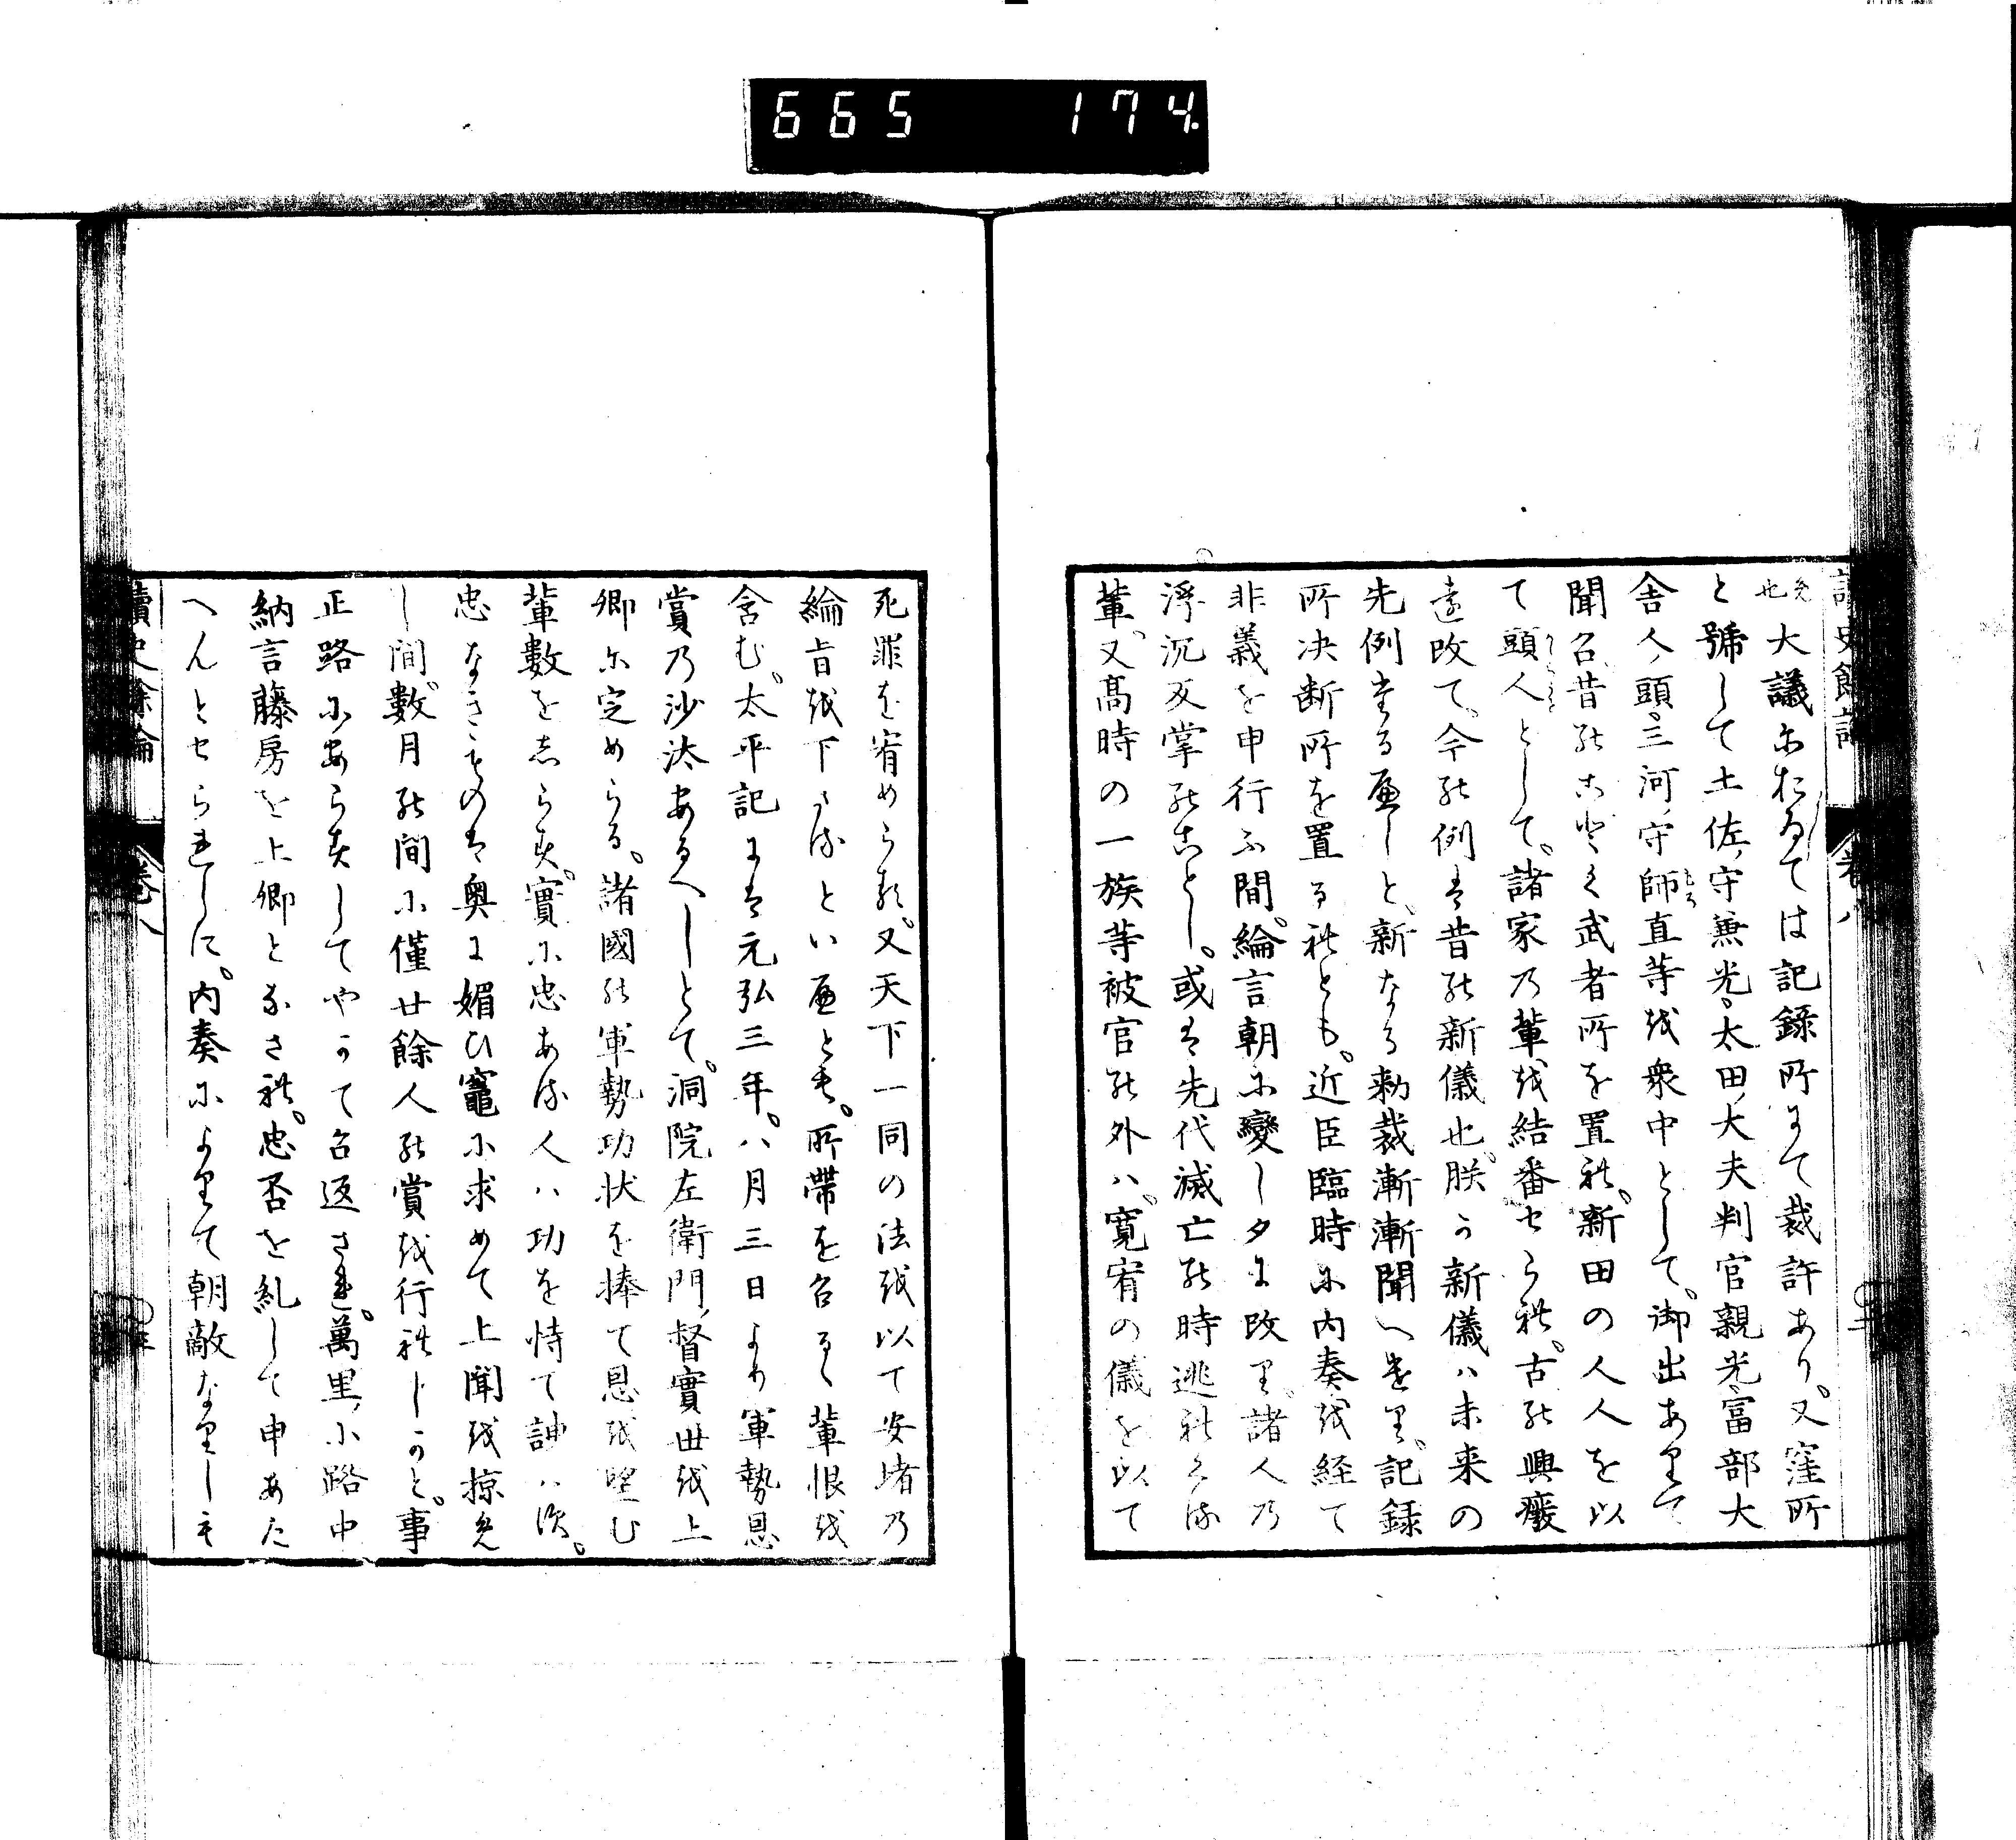 665 174
讀史餘論 卷八
也 大議におゐては記録所にて裁許あり。又窪所
と號して土佐守兼光。太田大夫判官親光。富部大
舎人頭。三河守師直等を衆中として。御出ありて
聞召。昔のことく武者所を置れ。新田の人人を以
て頭人として。諸家の輩を結番せらる。古の興廢
遠改て。今の例は昔の新儀也。朕か新儀ハ未来の
先例たるへしと。新なる勅裁漸漸聞へけり。記録
所決断所を置るれとも。近臣臨時に内奏を経て
非義を申行ふ間。綸言朝に變し夕に改り。諸人の
浮沉反掌のことし。或は先代滅亡の時逃れくる
輩。又高時の一族等被官の外ハ。寛宥の儀を以て
死罪を宥めらる。又天下一同の法を以て安堵の
綸旨を下さるといへとも。所帯を召るゝ輩恨を
含む。太平記には元弘三年。八月三日より軍勢恩
賞の沙汰あるへしとて。洞院左衛門督實世を上
卿に定めらる。諸國の軍勢功状を捧て恩を望む
輩數をしらす。實に忠ある人ハ功を恃て諛ハす。
忠なきものは奥に媚ひ竈に求めて上聞を掠め
し間。數月の間に僅廿餘人の賞を行れしかと。事
正路にあらすしてやかて召返され。萬里小路中
納言藤房を上卿となされ。忠否を糺して申あた
へんとせられしに。内奏によりて朝敵なりしも
讀史餘論 卷八